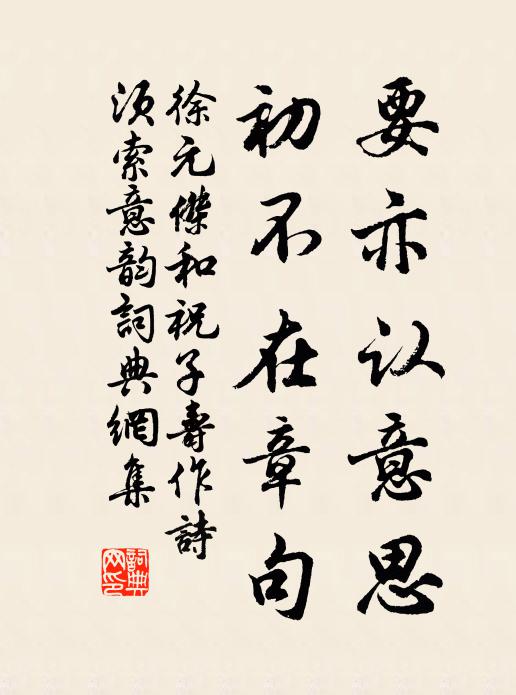 要亦认意思
初不在章句
徐元傑和祝子壽作詩
須索意韵詞典網集
詞典网印